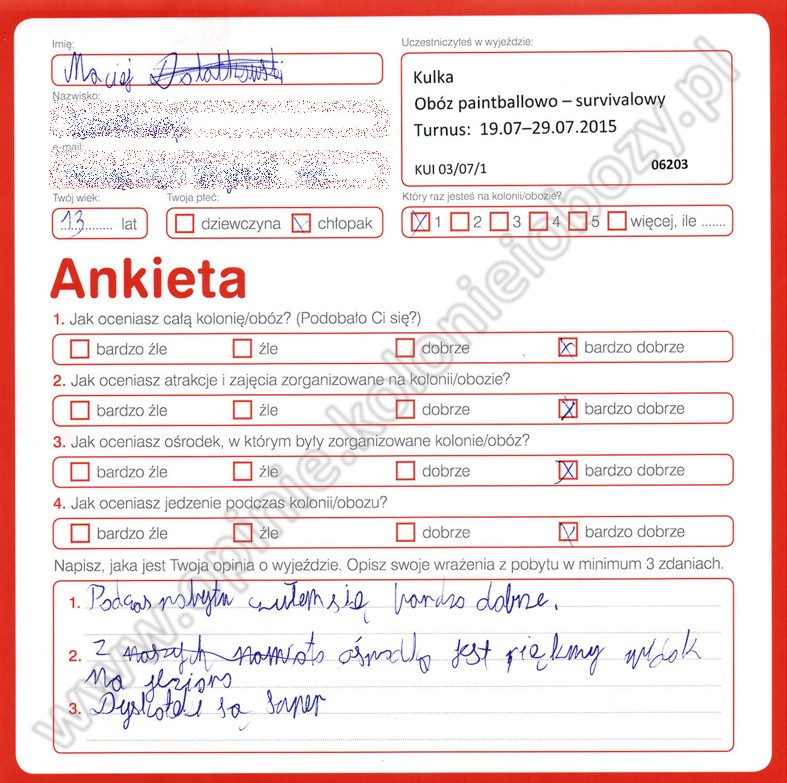 Imię:
Maciej
Nazwisko:
e-mail:
Twój wiek:
13 lat
Twoja płeć:
dziewczyna chłopak
Uczestniczyłeś w wyjeździe:
Kulka
Obóz paintballowo – survivalowy
Turnus: 19.07–29.07.2015
KUI 03/07/1 06203
Który raz jesteś na kolonii/obozie?
1 2 3 4 5 więcej, ile .......
Ankieta
1. Jak oceniasz całą kolonię/obóz? (Podobało Ci się?)
bardzo źle źle dobrze bardzo dobrze
2. Jak oceniasz atrakcje i zajęcia zorganizowane na kolonii/obozie?
bardzo źle źle dobrze bardzo dobrze
3. Jak oceniasz ośrodek, w którym były zorganizowane kolonie/obóz?
bardzo źle źle dobrze bardzo dobrze
4. Jak oceniasz jedzenie podczas kolonii/obozu?
bardzo źle źle dobrze bardzo dobrze
Napisz, jaka jest Twoja opinia o wyjeździe. Opisz swoje wrażenia z pobytu w minimum 3 zdaniach.
1. Podczas pobytu czułem się bardzo dobrze.
2. Z ośrodka jest piękny widok
na jezioro
3. Dyskoteki są super
www.opinie.kolonieiobozy.pl